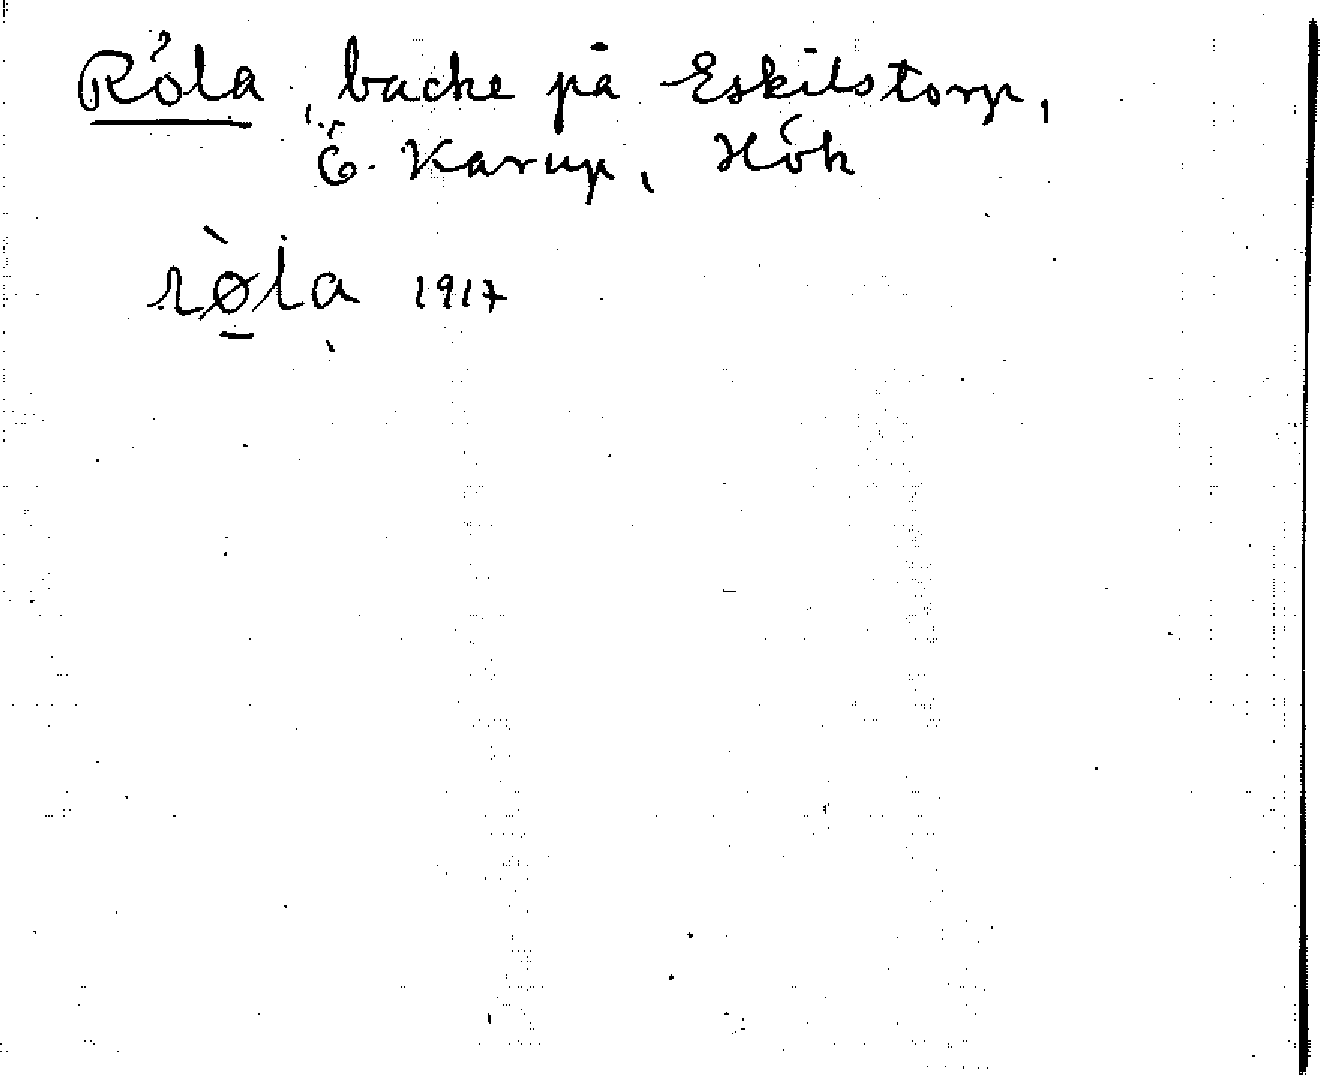 Röla, backe på Eskilstorp,
Ö. Karup, Hök
rø̠̀la 1917